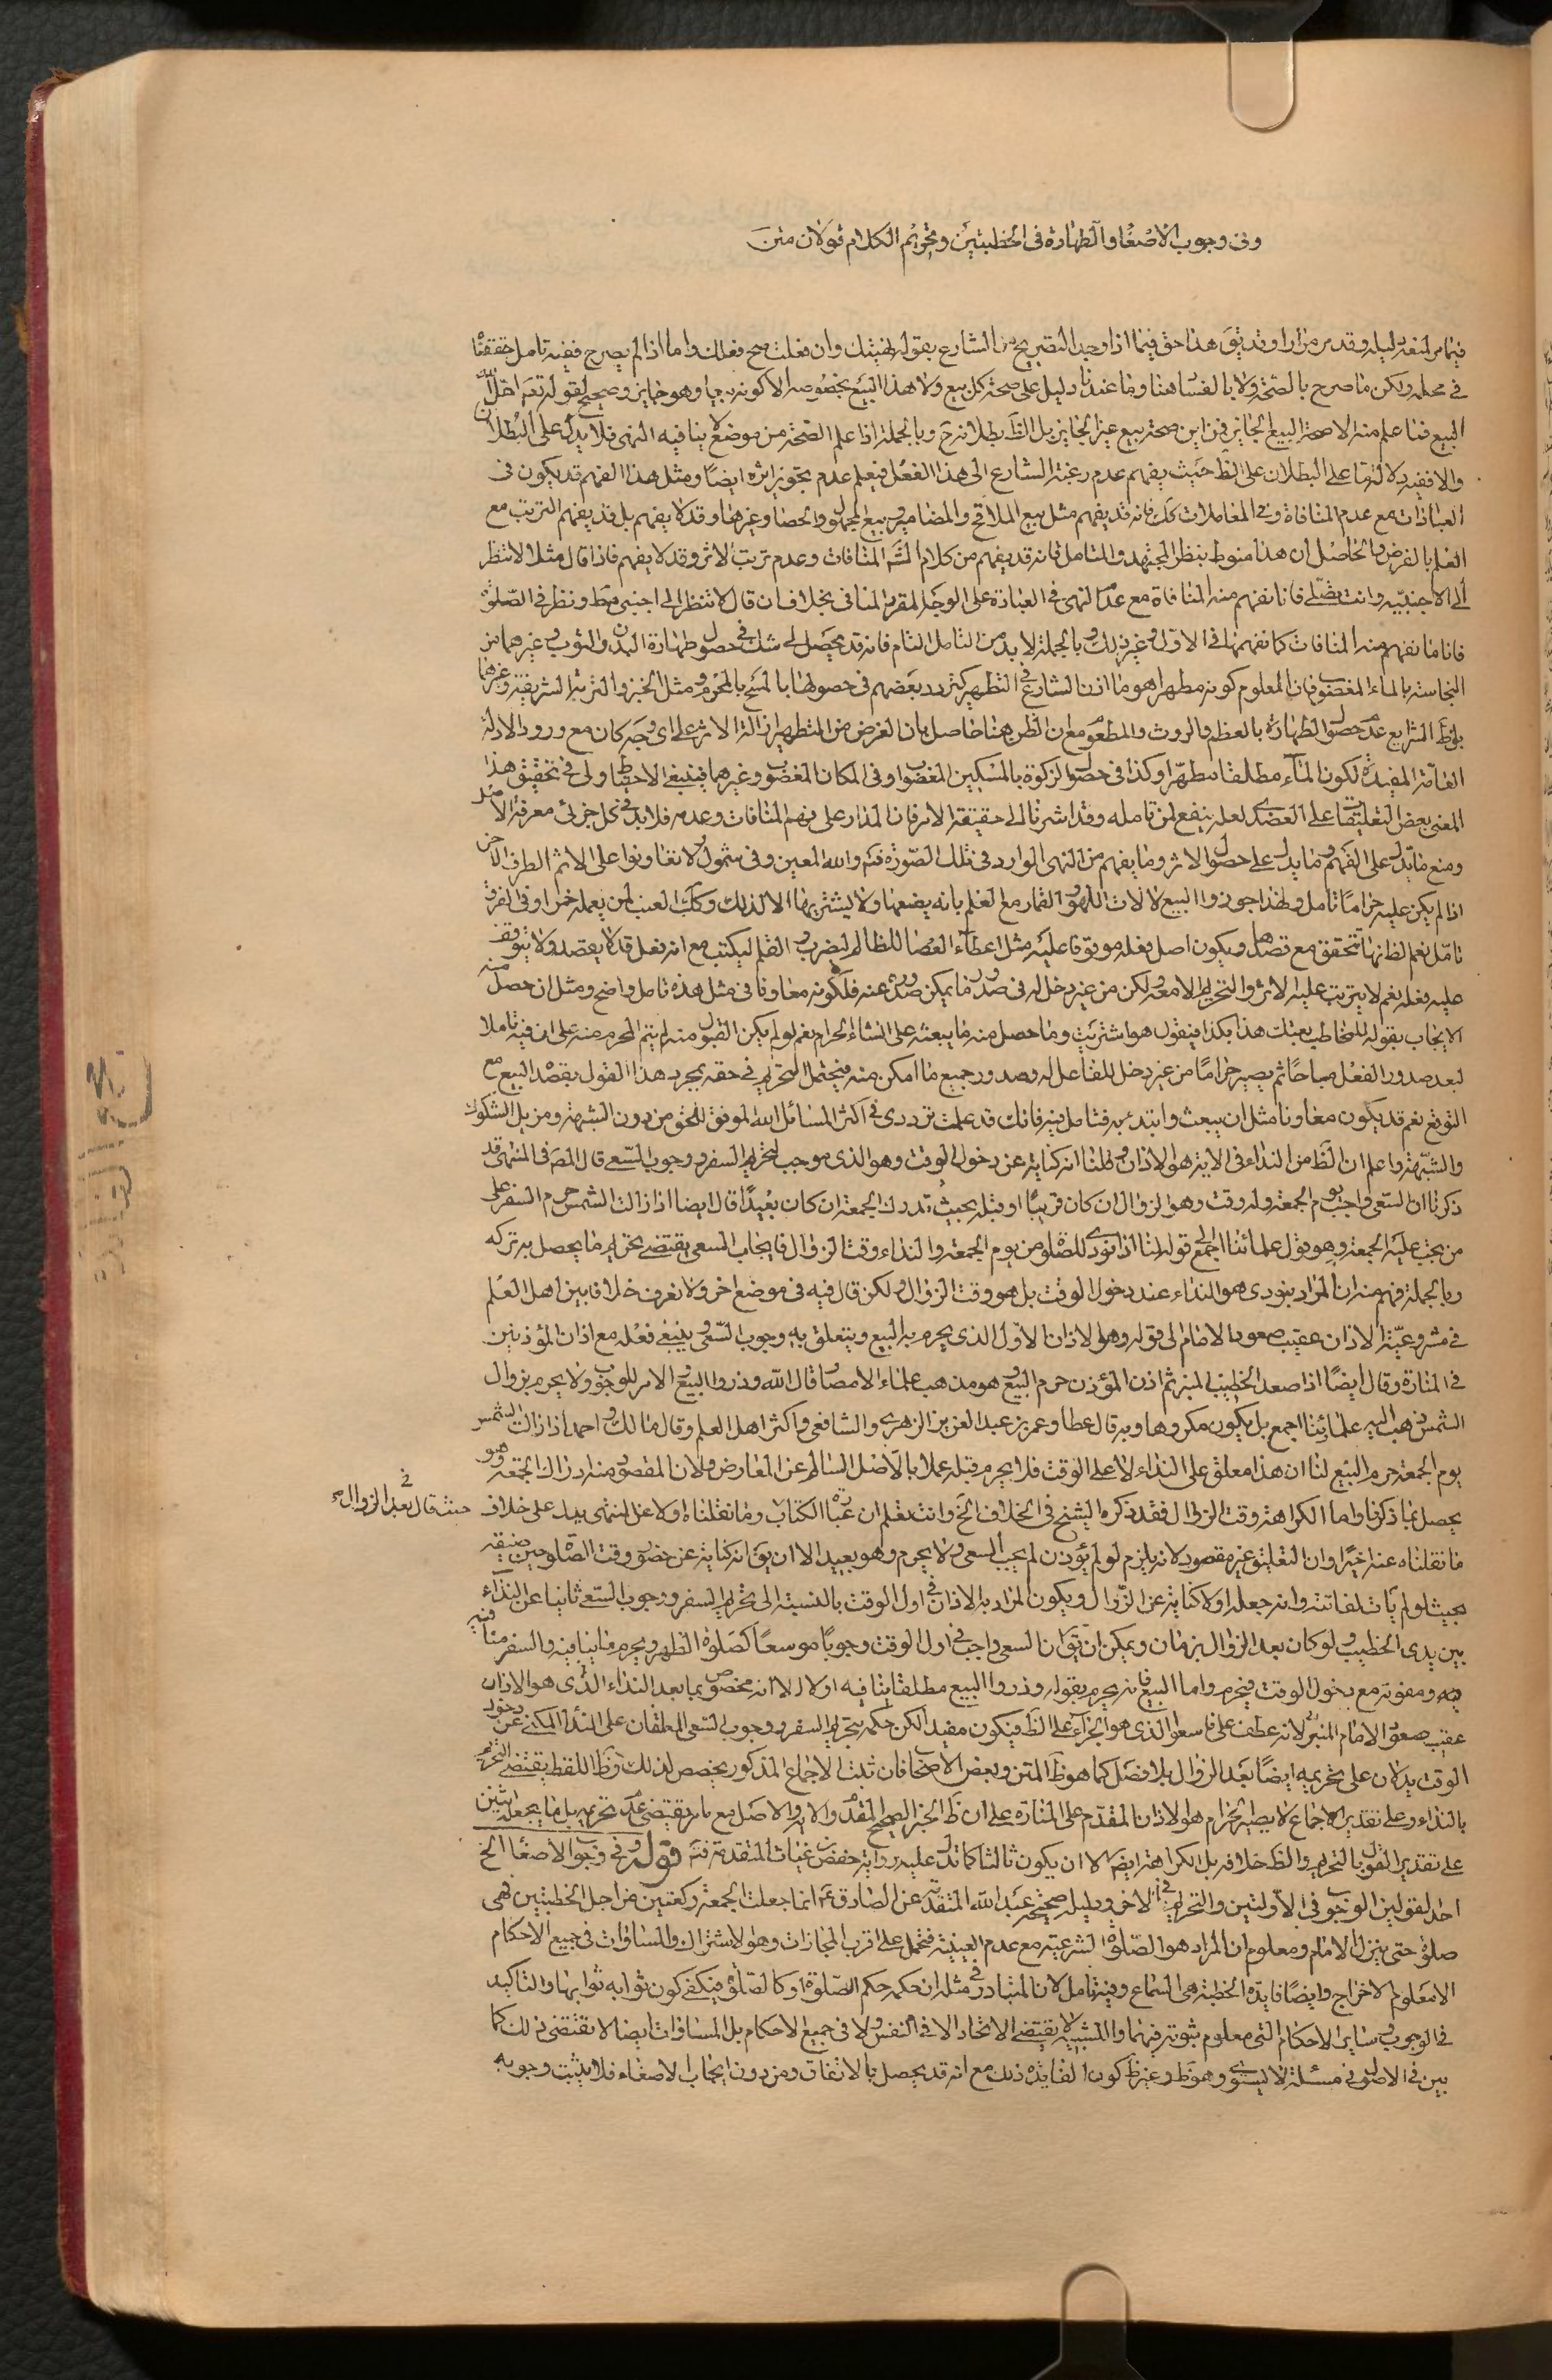 وفى وجوب الاصغا والطهارة فى الخطبتين وتحريم الكلام قولان متن
فيما مر لنعه دليله وقد مر مرارا وقد يق هذا حق فيما اذا وجد التصريح من الشارع بقوله نهيتك وان فعلت صح فعلك واما اذا لم يصرح ففيه تامل حققناه
فى محله ولكن ما صرح بالصحة ولا بالفساد هنا وما عندنا دليل على صحة كل بيع ولا هذا البيع بخصوصه الا كونه بيعا وهو جايز وصحيح لقوله تعه احل الله
البيع فما علم منه الا صحة البيع الجايز فمن اين صحة بيع غير الجايز بل الظ بطلانه ح وبالجملة اذا علم الصحة من موضع لا ينافيه النهى فلا يدل على البطلان
والا ففيه دلالة ما على البطلان على الظ حيث يفهم عدم رغبة الشارع الى هذا الفعل فيعلم عدم تجويز اثره ايضا ومثل هذا الفهم قد يكون فى
العبادات مع عدم المنافاة وفى المعاملات كك فانه قد يفهم مثل بيع الملاقح والمضامين وبيع المجهول والحصا وغيرها وقد لا يفهم بل قد يفهم الترتب مع
العلم بالفرض والحاصل ان هذا منوط بنظر المجتهد والمتامل فانه قد يفهم من كلام الش المنافات وعدم ترتب الاثر وقد لا يفهم فاذا قال مثلا لا تنظر
الى الاجنبية وانت تصلى فانا نفهم منه المنافاة مع عدم النهى فى العبادة على الوجه المقرر المنافى بخلاف ان قال لا تنظر الى اجنبى قط ونظر فى الصلوة
فانا ما نفهم منه المنافات كما نفهمها فى الاول وغير ذلك وبالجملة لا بد من التامل التام فانه قد يحصل لى شك فى حصول طهارة البدن والثوب وغيرهما من
النجاسة بالماء المغصوب فان المعلوم كونه مطهرا هو ما اذن الشارع فى التطهير كتردد بعضهم فى حصولها بالمسح بالمحرم مثل الخبز والتربة الشريفة وغيرها
بل ظ الشرايع عدم حصول الطهارة بالعظم والروث والمطعوم مع ان الظن هنا حاصل بان الغرض من التطهير ازالة الاثر على اى وجه كان مع ورود الادلة
العامة المفيدة لكون الماء مطلقا مطهرا وكذا فى حصول الزكوة بالسكين المغصوب او فى المكان المغصوب وغيرهما فينبغى الاحتياط ولى فى تحقيق هذا
المعنى بعض التعليقات على العضدى لعله ينفع لمن تامله وقد اشرنا الى حقيقة الامر فان المدار على فهم المنافات وعدمه فلا بد فى كل جزئى معرفة الامر
ومنع ما يدل على الفهم وما يدل على حصول الاثر وما يفهم من النهى الوارد فى تلك الصورة فتم والله المعين وفى شمول ولا تعاونوا على الاثم الطرف الاخر
اذا لم يكن عليه حراما تامل ولهذا جوزوا البيع لالات اللهو والقمار مع العلم بانه يضعها ولا يشتريها الا لذلك وكك العنب لمن يعمله خمرا وفى الفرق
تامل نعم الظ انها تتحقق مع قصدها ويكون اصل فعله موقوفا عليه مثل اعطاء العصا للظالم ليضرب والقلم ليكتب مع انه فعل قد لا يقصد ولا يتوقف
عليه فعله نعم لا يترتب عليه الاثر والتحريم الا معه ولكن من غير دخل له فى صدور ما يمكن صدوره عنه فلكونه معاونا فى مثل هذه تامل واضح ومثل ان حصل منه
الايجاب بقوله للمخاطب بعتك هذا بكذا فيقول هو اشتريت وما حصل منه ما يبعثه على انشاء الحرام نعم لو لم يكن القبول منه لم يتم المحرم منه على ان فيه تاملا
لبعد صدور الفعل مباحا ثم يصير حراما من غير دخل للفاعل له وصدور جميع ما امكن منه فيحتمل التحريم فى حقه بمجرد هذا القول بقصد البيع مع
التوقع نعم قد يكون معاونا مثل ان يبعث وابتدء به فتامل فيه فانك قد علمت ترددى فى اكثر المسائل الله الموفق للحق من دون الشبهة ومزيل الشكوك
والشبهة واعلم ان الظ من النداء فى الاية هو الاذان وقلنا انه كناية عن دخول الوقت وهو الذى موجب لتحريم السفر ووجوب السعى قال المص فى المنتهى قد
ذكرنا ان السعى واجب يوم الجمعة وله وقت وهو الزوال ان كان قريبا او قبله بحيث تدرك الجمعة ان كان بعيدا قال ايضا اذا زالت الشمس حرم السفر على
من يجب عليه الجمعة وهو قول علمائنا اجمع قوله لنا اذا نودى للصلوة من يوم الجمعة والنداء وقت الزوال فايجاب السعى يقتضى تحريم ما يحصل به تركه
وبالجملة فهم منه ان المراد بنودى هو النداء عند دخول الوقت بل هو وقت الزوال ولكن قال فيه فى موضع اخر ولا نعرف خلافا بين اهل العلم
فى مشروعية الاذان عقيب صعود الامام الى قوله وهو الاذان الاول الذى يحرم به البيع ويتعلق به وجوب السعى وينبغى فعله مع اذان المؤذنين
فى المنارة وقال ايضا اذا صعد الخطيب المنبر ثم اذن المؤذن حرم البيع وهو مذهب علماء الامصار قال الله وذروا البيع والامر للوجوب ولا يحرم بزوال
الشمس ذهب اليه علمائنا اجمع بل يكون مكروها وبه قال عطا وعمر بن عبد العزيز الزهرى والشافعى واكثر اهل العلم وقال مالك واحمد اذا زالت الشمس
يوم الجمعة حرم البيع لنا ان هذا معلق على النداء لا على الوقت فلا يحرم قبله عملا بالاصل السالم عن المعارض ولان المقصود منه ادراك الجمعة وهو
يحصل بما ذكرنا واما الكراهة وقت الزوال فقد ذكره الشيخ فى الخلاف الخ وانت تعلم ان عبارة الكتاب وما نقلناه اولا عن المنتهى يدل على خلاف
حيث قال بعد الزوال
ما نقلناه عنه اخيرا وان التعليق غير مقصود لانه يلزم لو لم يؤذن لم يجب السعى ولا يحرم وهو بعيد الا ان يق انه كناية عن حضور وقت الصلوة حين ضيقه
بحيث لو لم يات لفاتته وانه جعله اولا كناية عن الزوال ويكون المراد به الاذان فى اول الوقت بالنسبة الى تحريم السفر ووجوب السعى ثانيا عن النداء
بين يدى الخطيب ولو كان بعد الزوال بزمان ويمكن ان يق ان السعى واجب فى اول الوقت وجوبا موسعا كصلوة الظهر ويحرم ما ينافيه والسفر مناف
فيه ومفوته مع دخول الوقت فيحرم واما البيع فانه يحرم بقوله وذروا البيع مطلقا ينافيه اولا الا انه مخصوص بما بعد النداء الذى هو الاذان
عقيب صعود الامام المنبر لانه عطف على فاسعوا الذى هو الجزاء على الظ فيكون مفيدا لكن حكمه بتحريم السفر ووجوب السعى المعلقان على النداء المكنى عن دخول
الوقت يدلان على تحريمه ايضا بعد الزوال بلا فصل كما هو ظ المتن وبعض الاصحاب فان ثبت الاجماع المذكور يخصص لذلك وظ اللفظ يقتضى التحريم
بالنداء وعلى تقدير الاجماع لا يصير الحرام هو الاذان المقدم على المنارة على ان ظ الخبر الصحيح المقدم والامر والاصل مع ما مر يقتضى عدم تحريمه بل ما يجعله اثنين
على تقدير القول بالتحريم والظ خلافه بل الكراهة ايضا الا ان يكون ثالثا كما تدل عليه رواية حفص بن غياث المتقدمة فتم قوله وفى وجوب الاصغاء الخ
احد القولين الوجوب فى الاولتين والتحريم فى الاخير ودليله صحيحة عبد الله المتقدمة عن الصادق ع انما جعلت الجمعة ركعتين من اجل الخطبتين فهى
صلوة حتى ينزل الامام ومعلوم ان المراد هو الصلوة الشرعية مع عدم العينية فتحمل على اقرب المجازات وهو الاشتراك والمساوات فى جميع الاحكام
الا معلوم الاخراج وايضا فايدة الخطبة هى السماع وفيه تامل لان المتبادر فى مثله ان حكمه حكم الصلوة او كالصلوة فيكفى كون ثوابه ثوابها والتاكيد
فى الوجوب وساير الاحكام التى معلوم ثبوته فيهما والتشبيه لا يقتضى الاتحاد الا فى النفس ولا فى جميع الاحكام بل المساوات ايضا لا تقتضى ذلك كما
بين فى الاصول فى مسئلة لا يستوى وهو ظ وغير ظ كون الفايدة ذلك مع انه قد يحصل بالاتفاق ومن دون ايجاب الاصغاء فلا يثبت وجوبه